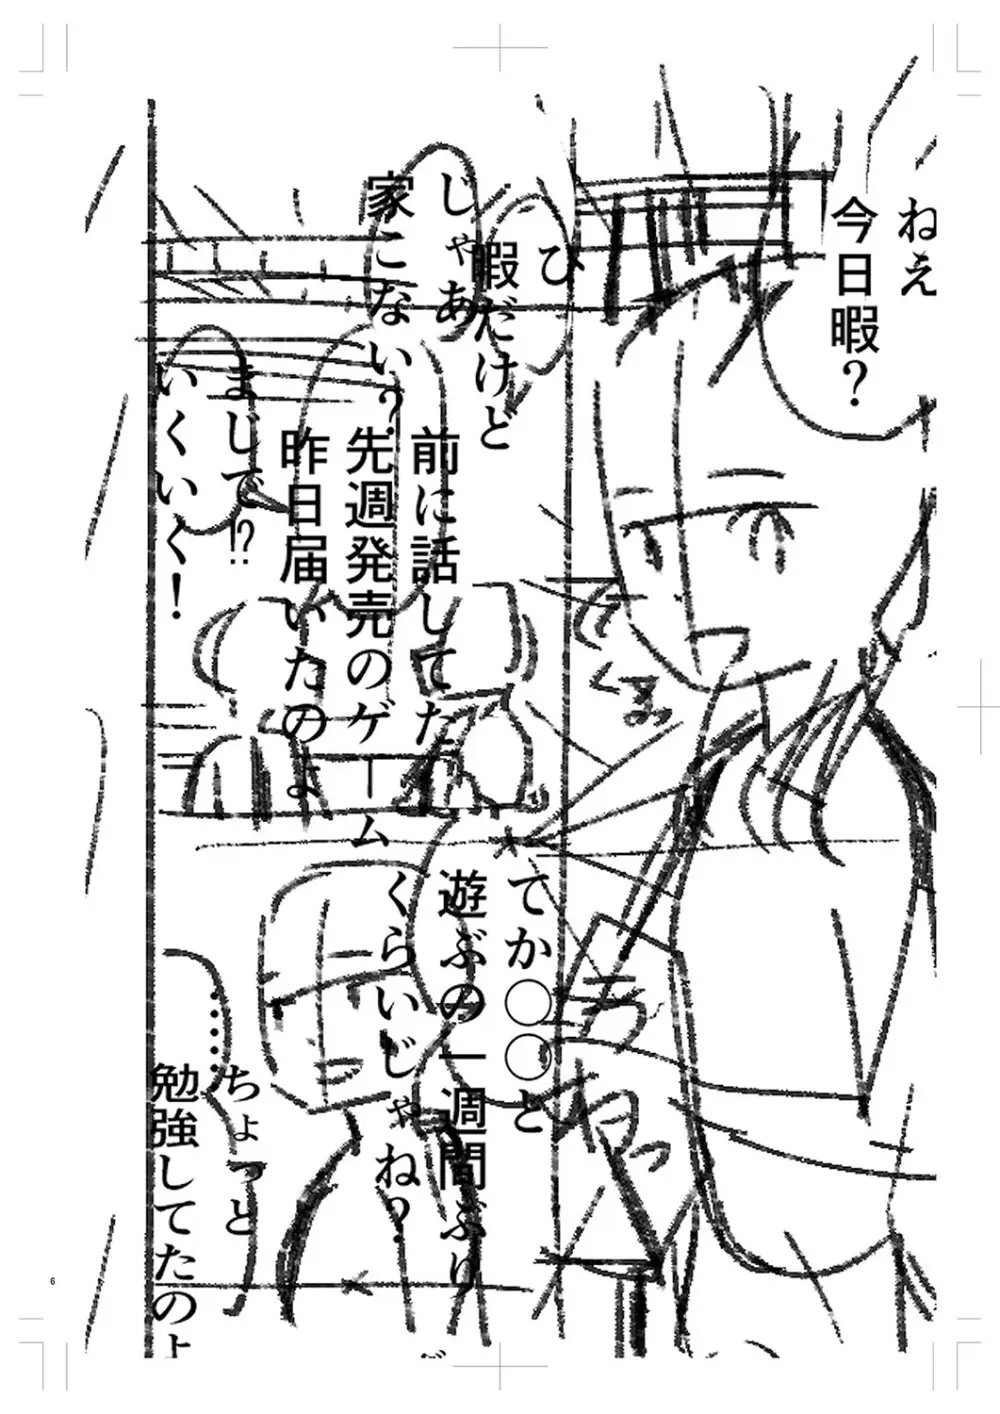 ねえ
今日暇？
ひ
暇だけど
じゃあ
家こない？
前に話してた
先週発売のゲーム
昨日届いたのよ
まじで!?
いくいく！
てか〇〇と
遊ぶの一週間ぶり
くらいじゃね？
……ちょっと
勉強してたのよ
6